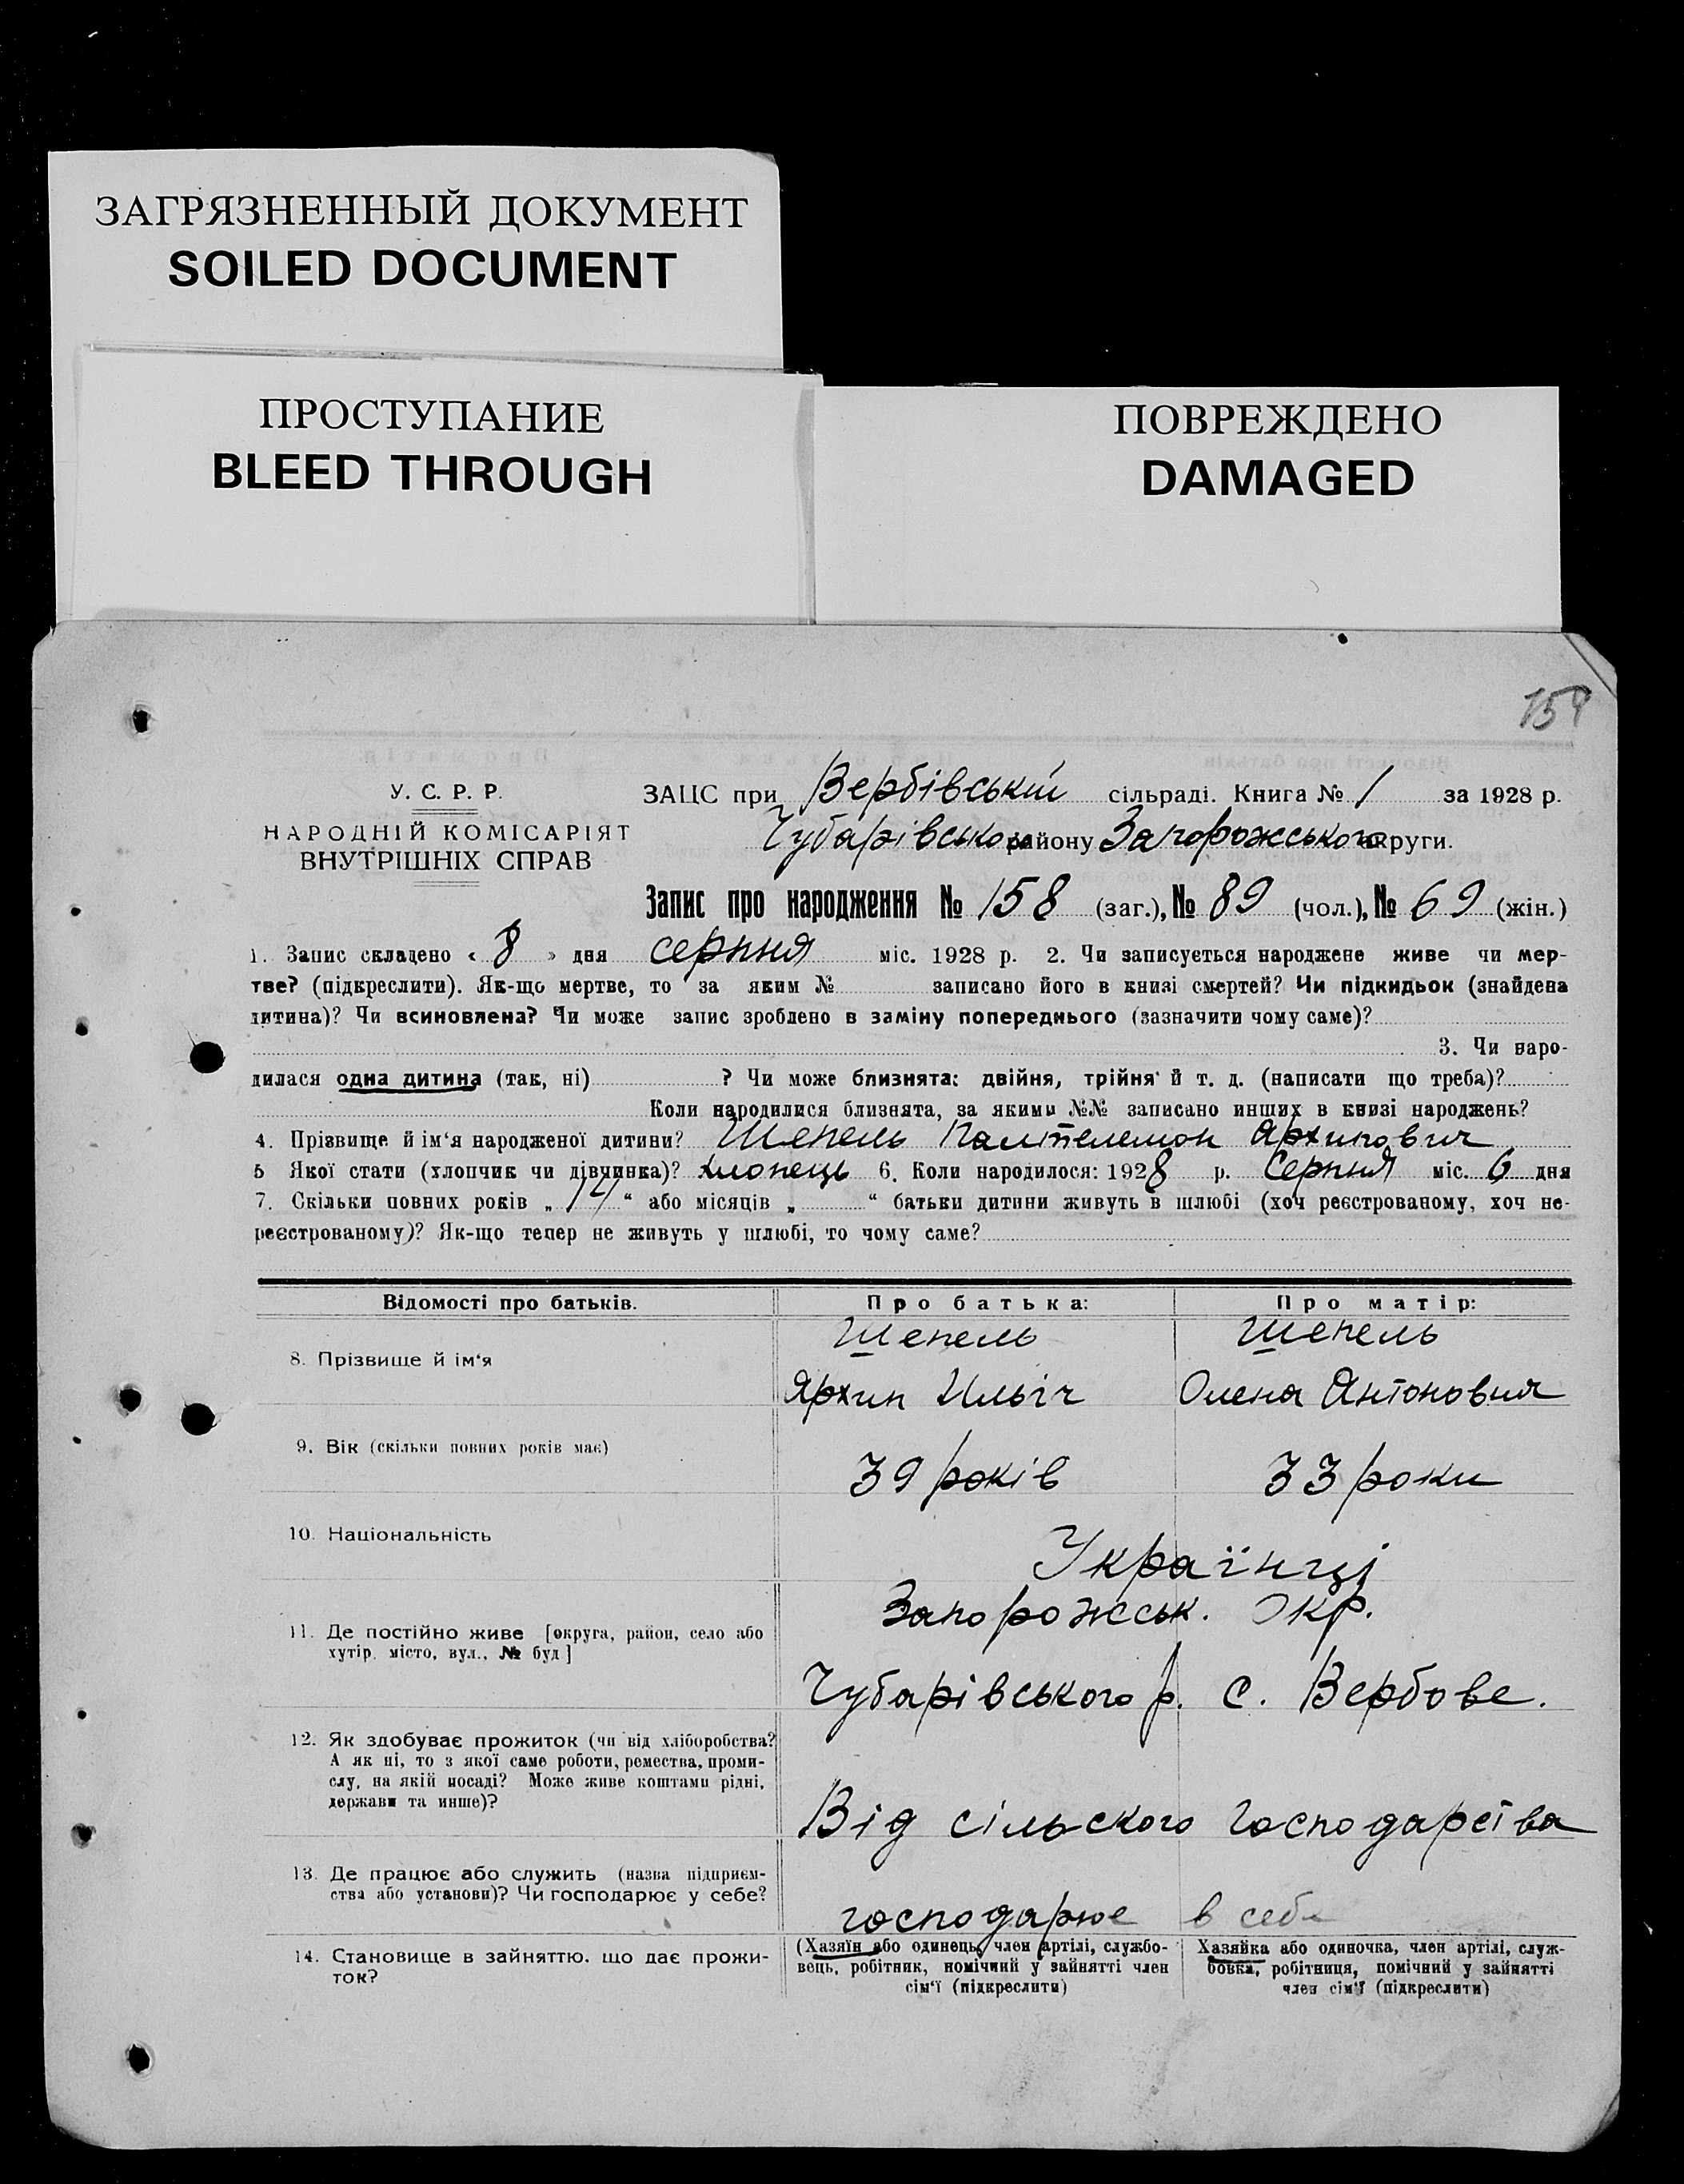 ЗАГРЯЗНЕННЫЙ ДОКУМЕНТ
SOILED DOCUMENT
ПРОСТУПАНИЕ
BLEED THROUGH
ПОВРЕЖДЕНО
DAMAGED
У. С. Р. Р.
НАРОДНІЙ КОМІСАРІЯТ
ВНУТРІШНІХ СПРАВ
ЗАЦС при Вербівській сільраді. Книга № 1 за 1928 р.
Чубарівського району Запорожського округи.
Запис про народження № 158 (заг.), № 89 (чол.), № 69 (жін.)
1. Запис складено « 8 » дня серпня міс. 1928 р. 2. Чи записується народжене живе чи мер-
тве? (підкреслити). Як-що мертве, то за яким № записано його в книзі смертей? Чи підкидьок (знайдена
дитина)? Чи всиновлена? Чи може запис зроблено в заміну попереднього (зазначити чому саме)?
3. Чи наро-
дилася одна дитина (так, ні) ? Чи може близнята: двійня, трійня й т. д. (написати що треба)?
Коли народилися близнята, за якими №№ записано инших в книзі народжень?
4. Прізвище й ім‘я народженої дитини? Шепель Пантелемон Архипович
5 Якої стати (хлопчик чи дівчинка)? хлопець 6. Коли народилося: 1928 р. Серпня міс. 6 дня
7. Скільки повних років „ 14 “ або місяців „ “ батьки дитини живуть в шлюбі (хоч реєстрованому, хоч не-
реєстрованому)? Як-що тепер не живуть у шлюбі, то чому саме?
Відомості про батьків. Про батька: Про матір:
8. Прізвище й ім‘я
Шепель Шепель
Архип Ильіч Олена Антоновия
9. Вік (скільки повних років має)
39 років 33 роки
10. Національність
Українці
11. Де постійно живе [округа, район, село або
хутір, місто, вул., № буд]
Запорожськ. Окр.
Чубарівського р. с. Вербове.
12. Як здобуває прожиток (чи від хліборобства?
А як ні, то з якої саме роботи, ремества, проми-
слу, на якій посаді? Може живе коштами рідні,
держави та инше)?
Від сільского господарства
13. Де працює або служить (назва підприєм-
ства або установи)? Чи господарює у себе?
господарює в себе
14. Становище в зайняттю. що дає прожи-
ток?
(Хазяїн або одинець, член артілі, службо-
вець, робітник, помічний у зайнятті член
сім‘ї (підкреслити)
Хазяйка або одиночка, член артілі, служ-
бовка, робітниця, помічний у зайнятті
член сім‘ї (підкреслити)